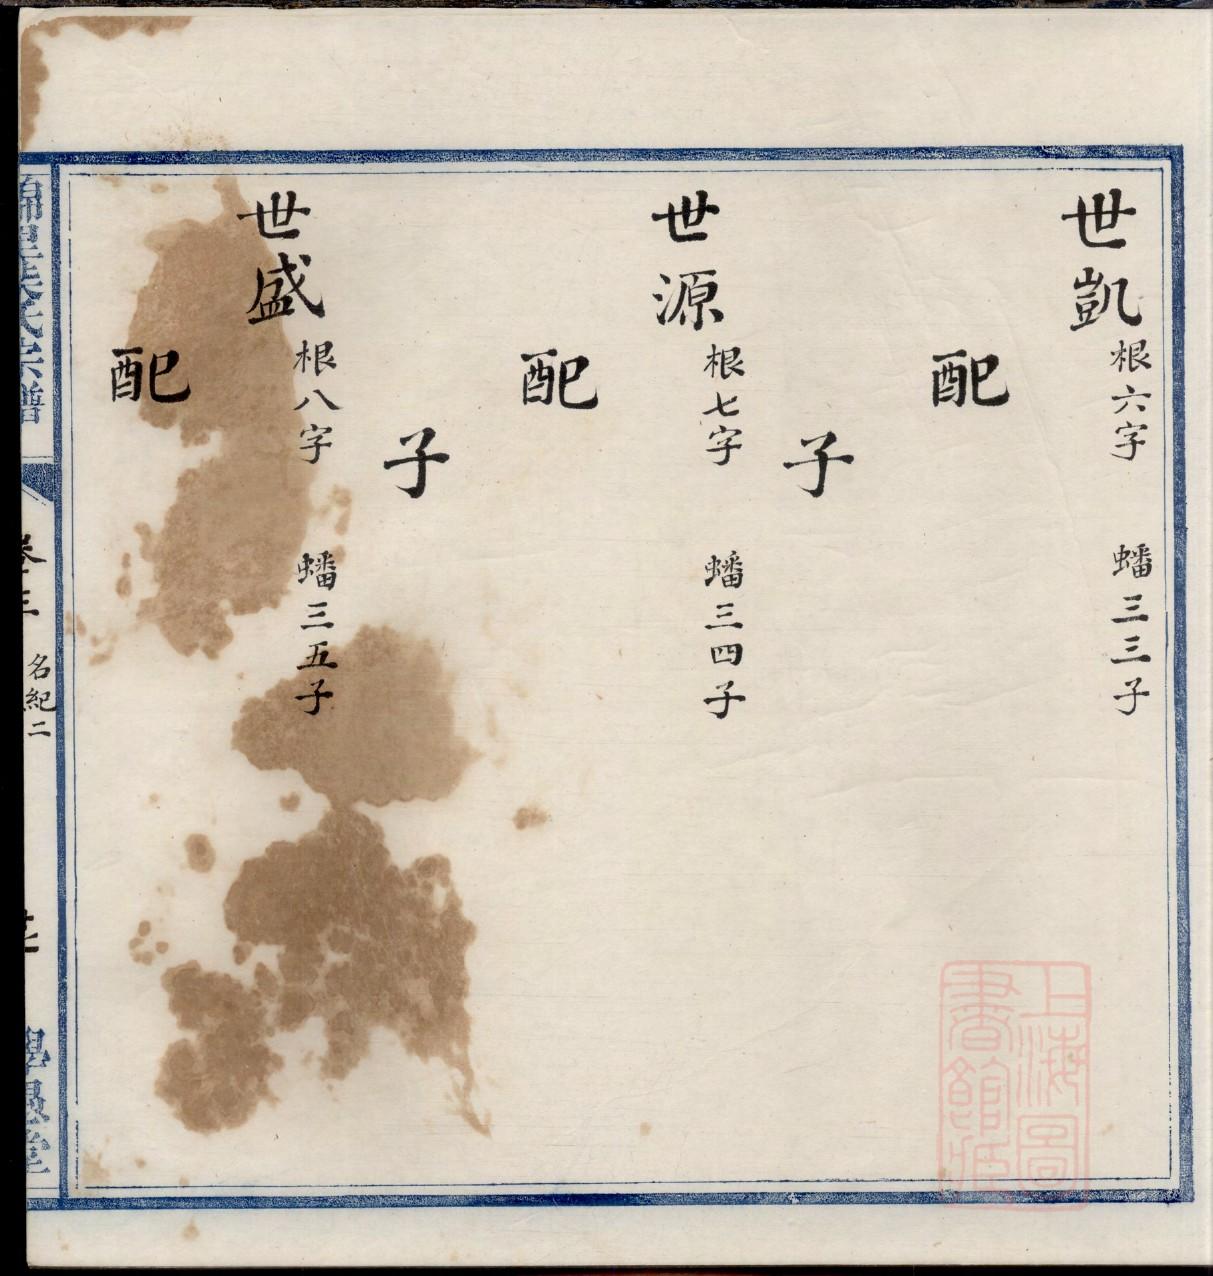 世凱
根六字
蟠三三子
配
子
世源
根七字
蟠三四子
配
子
世盛
根八字
蟠三五子
配
氏宗譜
卷三
名紀二
上海圖
書館藏